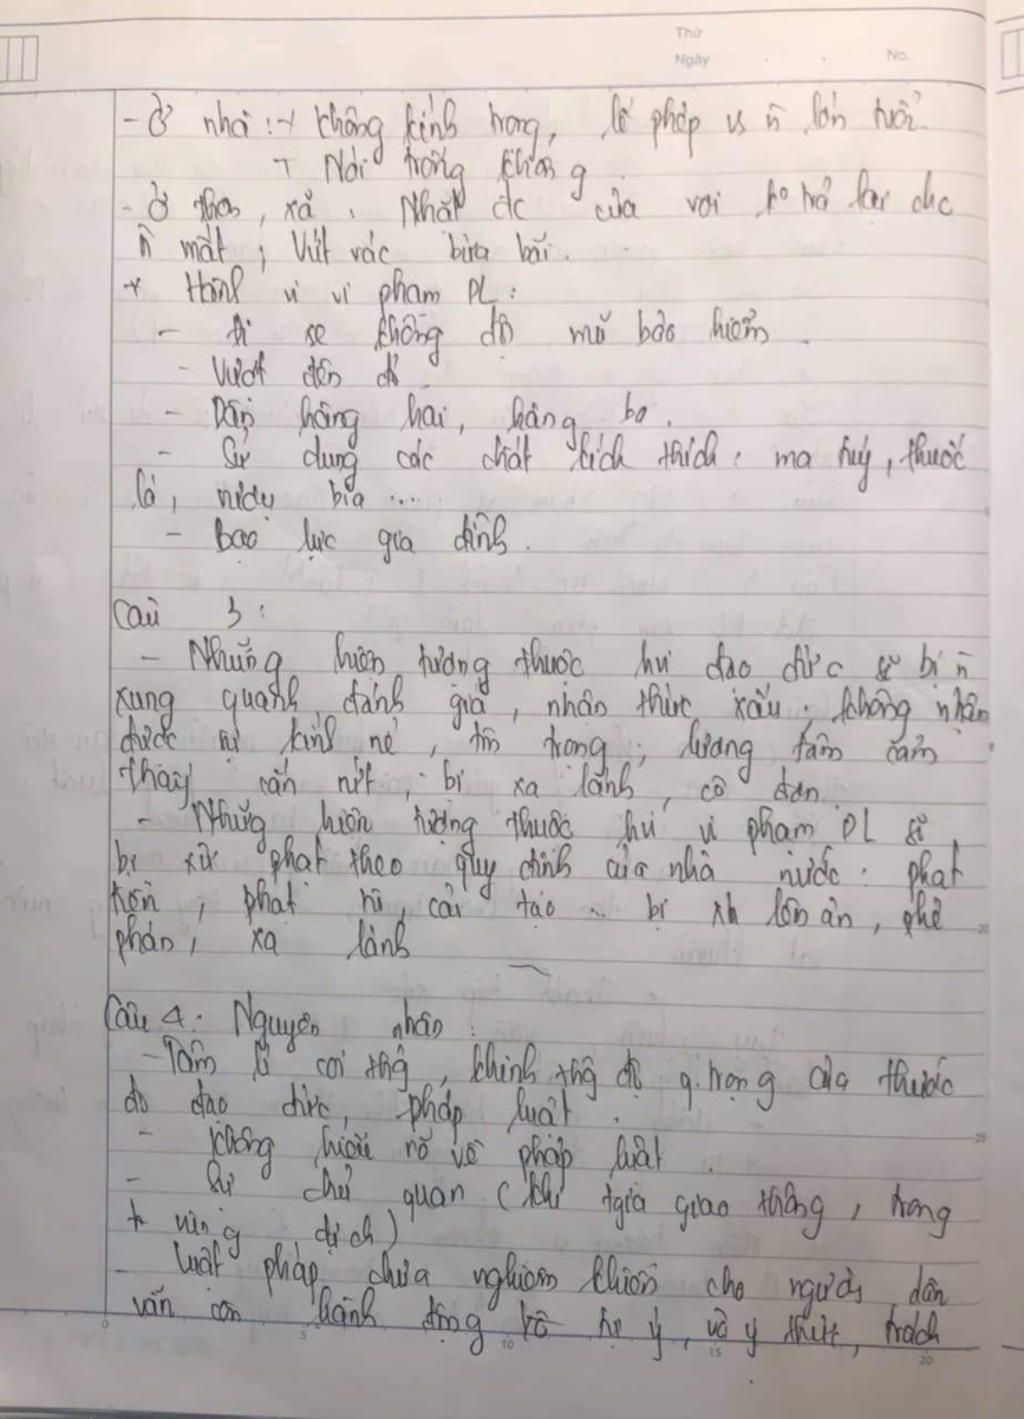 Thứ
Ngày No.
- Ở nhà : + không kính trọng, lễ phép vs ñ lớn tuổi.
+ Nói trống không.
- Ở thôn, xã : Nhặt đc của rơi ko trả lại cho
ñ mất ; Vứt rác bừa bãi.
+ Hành vi vi phạm PL :
- Đi xe không đội mũ bảo hiểm.
- Vượt đèn đỏ.
- Dàn hàng hai, hàng ba.
- Sử dụng các chất kích thích : ma túy, thuốc
lá, rượu bia ....
- Bạo lực gia đình.
Câu 3 :
- Những hiện tượng thuộc hvi đạo đức sẽ bị ñ
xung quanh đánh giá, nhận thức xấu ; không nhận
được sự kính nể, tôn trọng ; lương tâm cảm
thấy cắn rứt ; bị xa lánh, cô đơn.
- Những hiện tượng thuộc hvi vi phạm PL sẽ
bị xử phạt theo quy định của nhà nước : phạt
tiền ; phạt tù, cải tạo ... bị xh lên án, phê
phán, xa lánh
Câu 4 : Nguyên nhân :
- Tâm lí coi thg, khinh thg độ q.trọng của thước
đo đạo đức, pháp luật.
- Không hiểu rõ về pháp luật.
- Sự chủ quan (khi tgia giao thông, trong
dịch)
- Luật pháp chưa nghiêm khiến cho người dân
vẫn còn hành động vô ý, và ý thức, trách
0 5 10 15 20
25